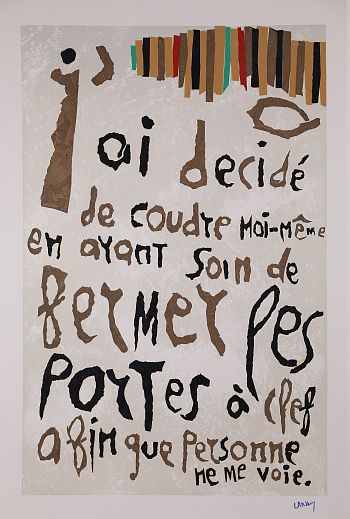 j'ai decidé
de coudre moi-même
en ayant soin de
fermer les
portes à clef
afin que personne
ne me voie.